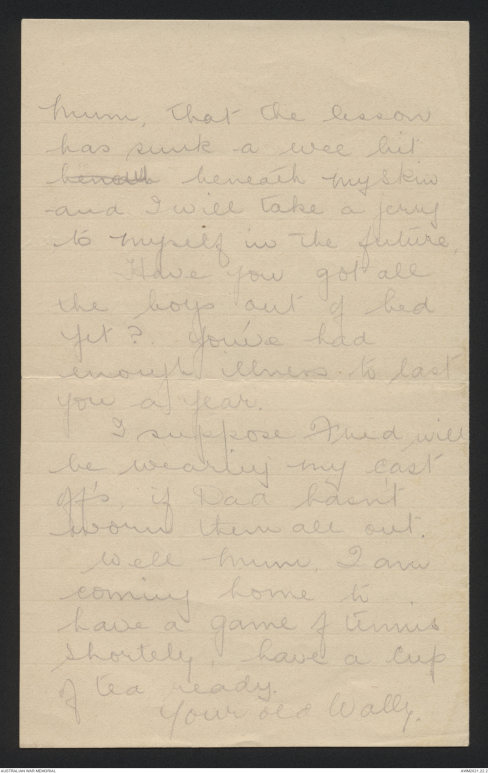 Mum, that the lesson
has sunk a wee bit
beneath my skin
and I will take a jerry
to myself in the future.
Have you got all
the boys out of bed
yet? You've had
enough illness to last
you a year.
I suppose Fred will
be wearing my cast
off's, if Dad hasn't
worn them all out.
Well Mum, I am
coming home to
have a game of tennis
shortely, have a cup
of tea ready.
Your old Wally.
AUSTRALIAN WAR MEMORIAL